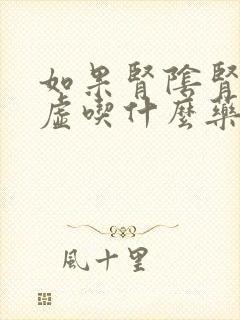 如果腎陰腎
虛喫什麼藥
風十里